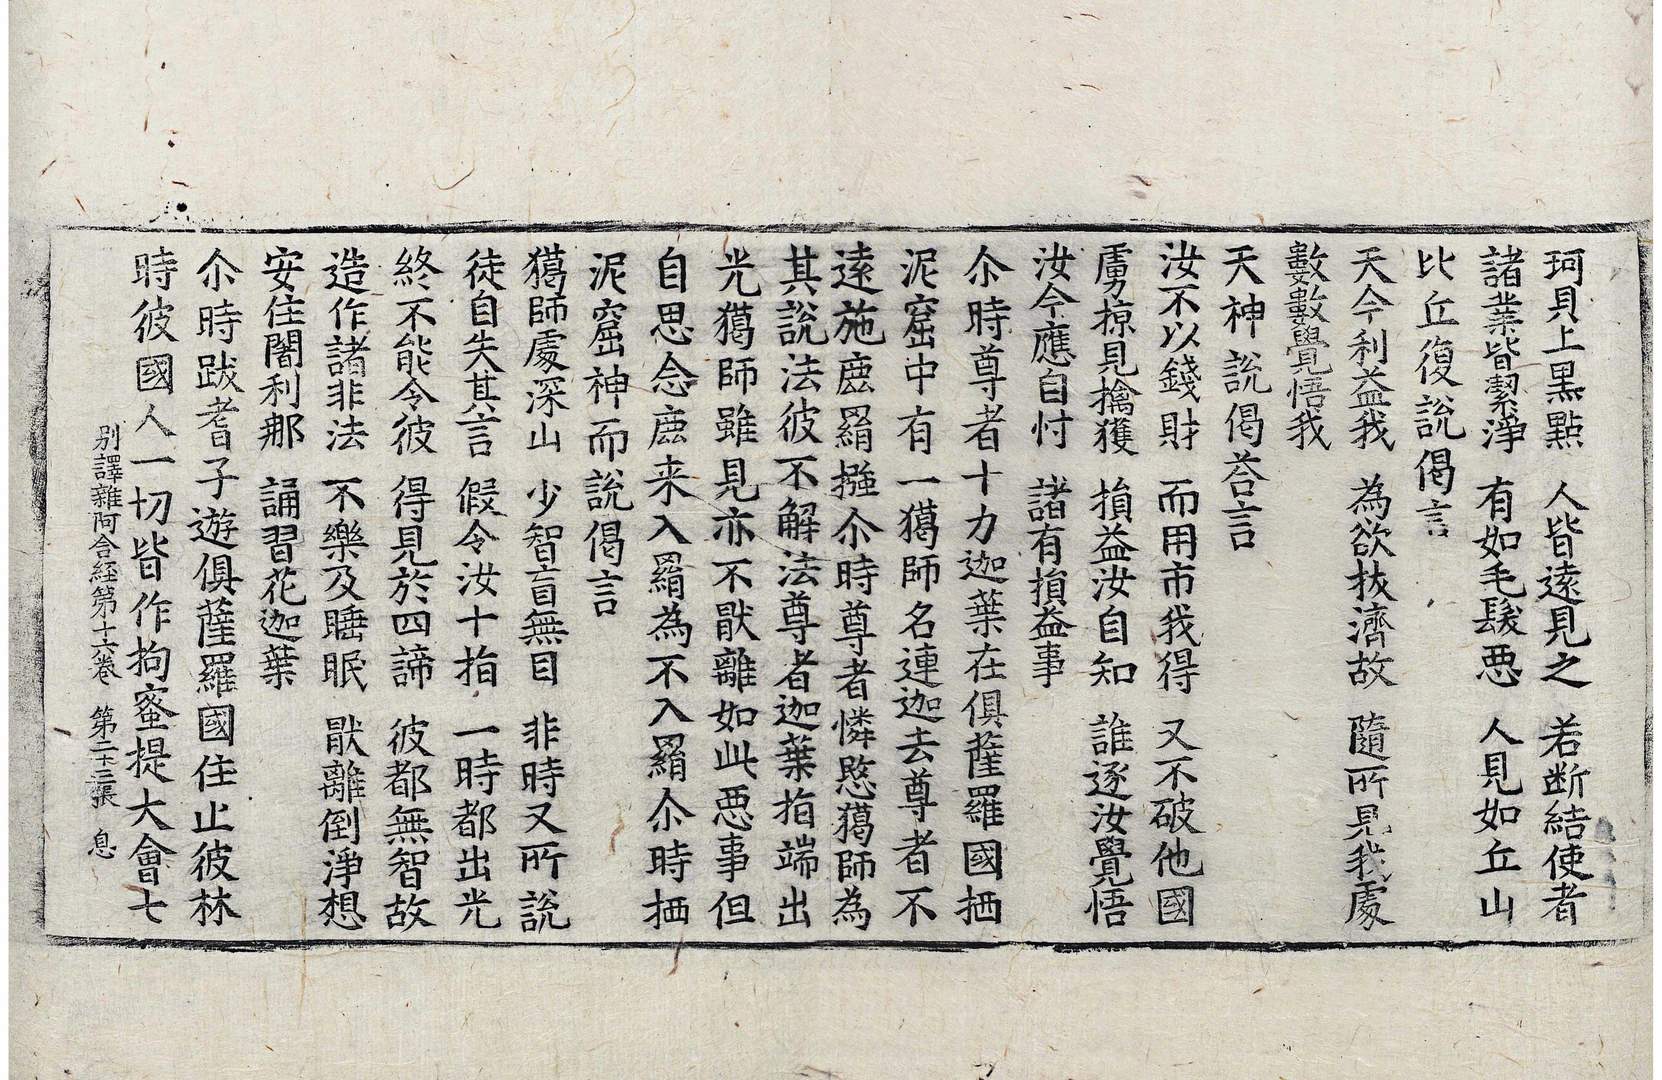 珂貝上黒點 人皆遠見之 若断結使者
諸業皆潔淨 有如毛髮悪 人見如丘山
比丘復說偈言
天今利益我 為欲抜濟故 隨所見我處
數數覺悟我
天神說偈荅言
汝不以錢財 而用市我得 又不破他國
虜掠見擒獲 損益汝自知 誰逐汝覺悟
汝今應自忖 諸有損益事
尒時尊者十力迦葉在俱薩羅國栖
泥窟中有一獦師名連迦去尊者不
遠施鹿羂摾尒時尊者憐愍獦師為
其說法彼不解法尊者迦葉指端出
光獦師雖見亦不猒離如此悪事但
自思念鹿来入羂為不入羂尒時栖
泥窟神而說偈言
獦師處深山 少智盲無目 非時又所說
徒自失其言 假令汝十指 一時都出光
終不能令彼 得見於四諦 彼都無智故
造作諸非法 不樂及睡眠 猒離倒淨想
安住闍利那 誦習花迦葉
尒時跋耆子遊俱薩羅國住止彼林
時彼國人一切皆作拘蜜提大會七
別譯雜阿含経第十六卷 第二十三張 息